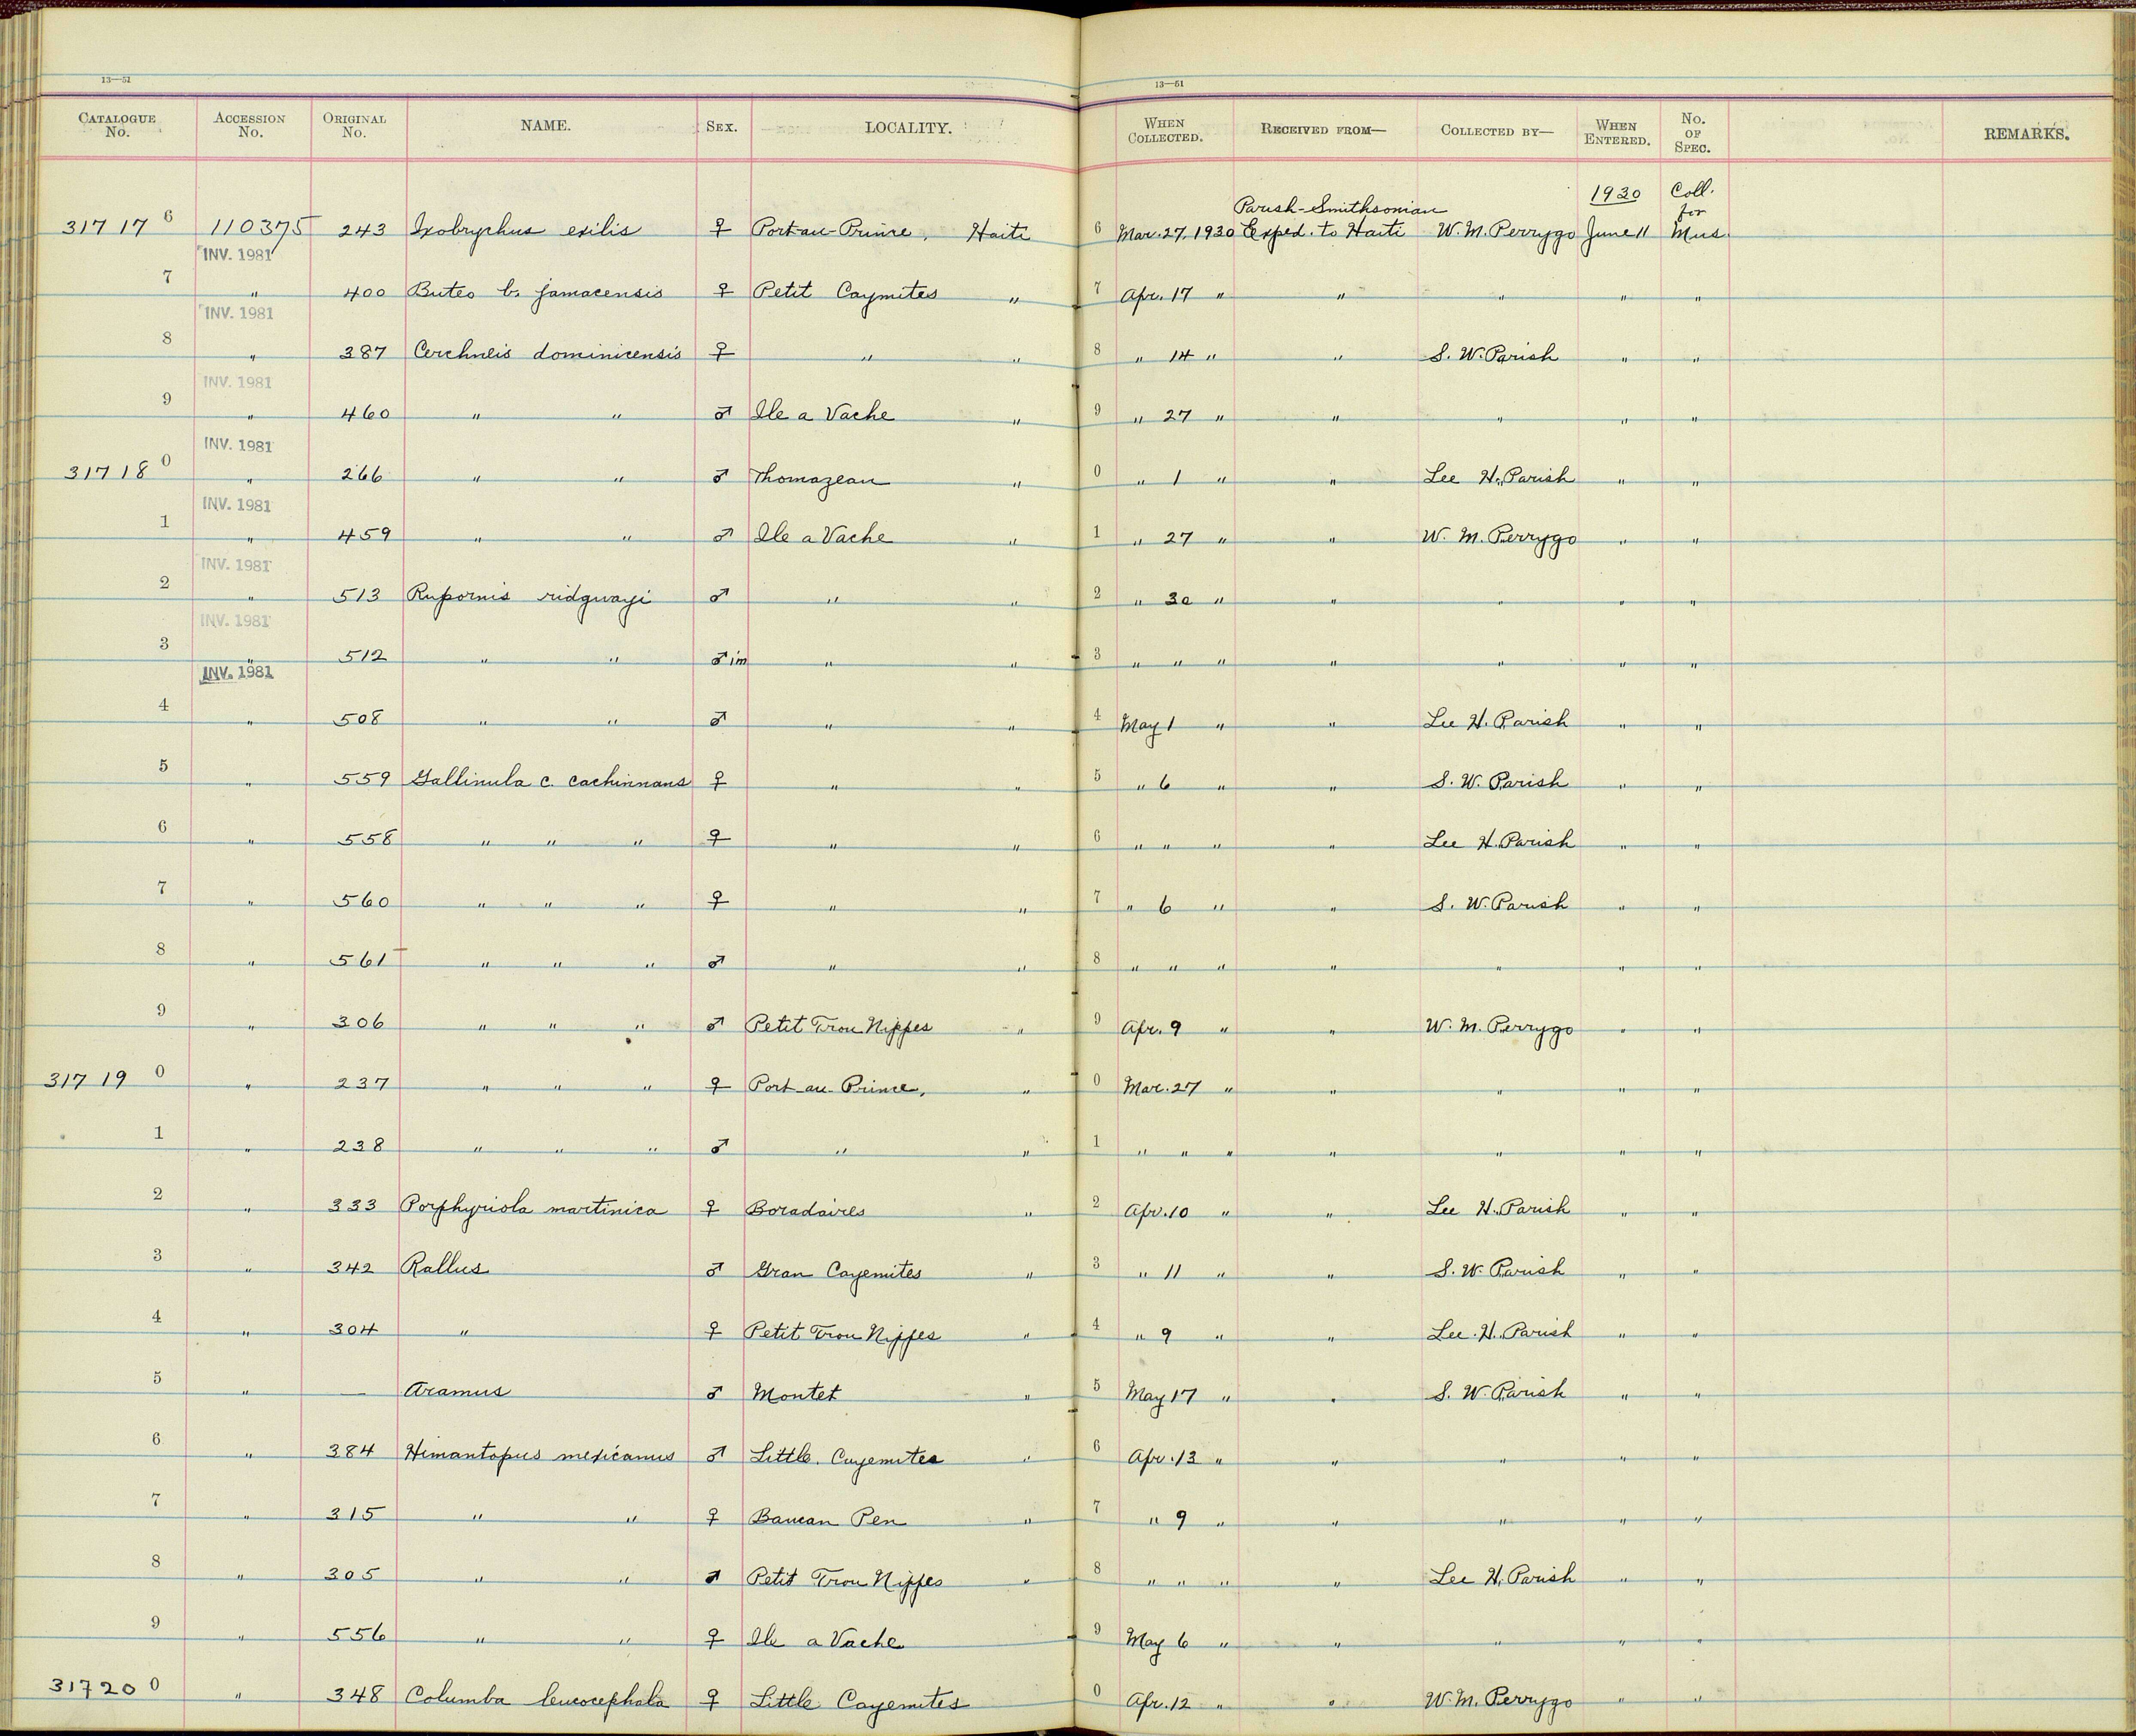 13—51 13—51
CATALOGUE No. ACCESSION No. ORIGINAL No. NAME. SEX. LOCALITY. WHEN COLLECTED. RECEIVED FROM— COLLECTED BY— WHEN ENTERED. No. OF SPEC. REMARKS.
31717 6 110375 243 Ixobrychus exilis ♀ Port-au-Prince, Haiti 6 Mar. 27, 1930 Parish-Smithsonian Exped. to Haiti W. M. Perrygo 1930 June 11 Coll. for Mus.
INV. 1981
7 " 400 Buteo b. jamacensis ♀ Petit Caymites " 7 Apr. 17 " " " " "
INV. 1981
8 " 387 Cerchneis dominicensis ♀ " " 8 " 14 " " S. W. Parish " "
INV. 1981
9 " 460 " " ♂ Ile a Vache " 9 " 27 " " " " "
INV. 1981
31718 0 " 266 " " ♂ Thomazeau " 0 " 1 " " Lee H. Parish " "
INV. 1981
1 " 459 " " ♂ Ile a Vache " 1 " 27 " " W. M. Perrygo " "
INV. 1981
2 " 513 Rupornis ridgwayi ♂ " " 2 " 30 " " " " "
INV. 1981
3 " 512 " " ♂ im " " 3 " " " " " " "
INV. 1981
4 " 508 " " ♂ " " 4 May 1 " " Lee H. Parish " "
5 " 559 Gallinula c. cachinnans ♀ " " 5 " 6 " " S. W. Parish " "
6 " 558 " " " ♀ " " 6 " " " " Lee H. Parish " "
7 " 560 " " " ♀ " " 7 " 6 " " S. W. Parish " "
8 " 561 " " " ♂ " " 8 " " " " " " "
9 " 306 " " " ♂ Petit Trou Nippes " 9 Apr. 9 " " W. M. Perrygo " "
31719 0 " 237 " " " ♀ Port-au-Prince, " 0 Mar. 27 " " " " "
1 " 238 " " " ♂ " " 1 " " " " " " "
2 " 333 Porphyriola martinica ♀ Boradaires " 2 Apr. 10 " " Lee H. Parish " "
3 " 342 Rallus ♂ Gran Cayemites " 3 " 11 " " S. W. Parish " "
4 " 304 " ♀ Petit Trou Nippes " 4 " 9 " " Lee H. Parish " "
5 " — Aramus ♂ Montet " 5 May 17 " " S. W. Parish " "
6 " 384 Himantopus mexicanus ♂ Little Cayemites " 6 Apr. 13 " " " " "
7 " 315 " " ♀ Baucan Pen " 7 " 9 " " " " "
8 " 305 " " ♂ Petit Trou Nippes " 8 " " " " Lee H. Parish " "
9 " 556 " " ♀ Ile a Vache 9 May 6 " " " " "
31720 0 " 348 Columba leucocephala ♀ Little Cayemites 0 Apr. 12 " " W. M. Perrygo " "